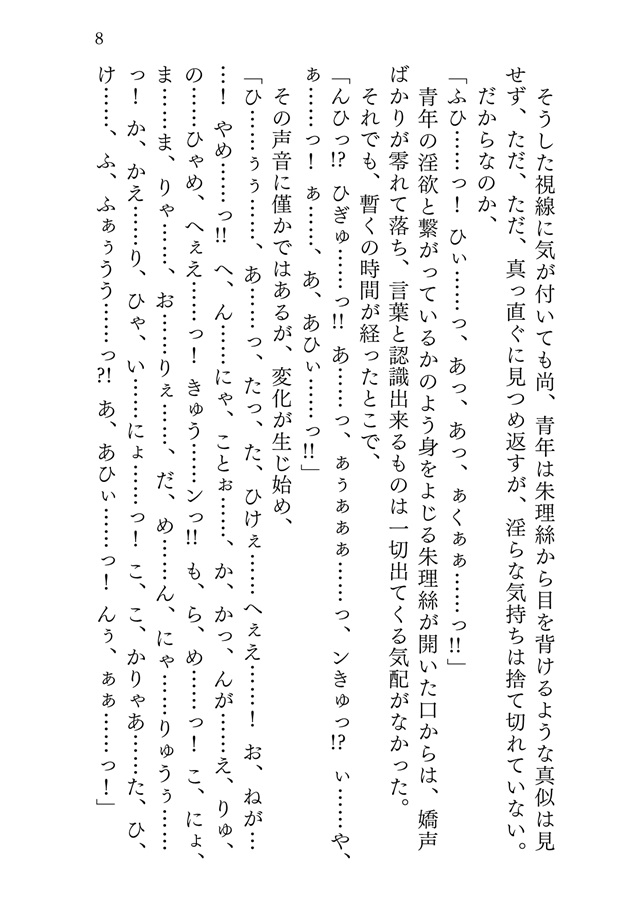 8
そうした視線に気が付いても尚、青年は朱理絲から目を背けるような真似は見
せず、ただ、ただ、真っ直ぐに見つめ返すが、淫らな気持ちは捨て切れていない。
だからなのか、
「ふひ……っ！　ひぃ……っ、あっ、あっ、ぁくぁぁ……っ!!」
青年の淫欲と繋がっているかのよう身をよじる朱理絲が開いた口からは、嬌声
ばかりが零れて落ち、言葉と認識出来るものは一切出てくる気配がなかった。
それでも、暫くの時間が経ったとこで、
「んひっ!?　ひぎゅ……っ!!　あ……っ、ぁぅぁぁぁ……っ、ンきゅっ!?　ぃ……や、
ぁ……っ！　ぁ……、あ、あひぃ……っ!!」
その声音に僅かではあるが、変化が生じ始め、
「ひ……ぅぅ……、あ……っ、たっ、た、ひけぇ……へぇえ……！　お、ねが…
…！　やめ……っ!!　へ、ん……にゃ、ことぉ……、か、かっ、んが……え、りゅ、
の……ひゃめ、へぇえ……っ！　きゅう……ンっ!!　も、ら、め……っ！　こ、にょ、
ま……ま、りゃ……、お……りぇ……、だ、め……ん、にゃ……りゅうぅ……
っ！　か、かえ……り、ひゃ、い……にょ……っ！　こ、こ、かりゃあ……た、ひ、
け……、ふ、ふぁぅうう……っ?!　あ、あひぃ……っ！　んぅ、ぁぁ……っ！」